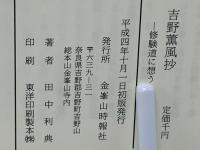 吉野薫風抄
―修験道に想う
定価千円
平成四年十月一日初版発行
発行所　金峯山時報社
〒六三九―三一
奈良県吉野郡吉野町吉野山
総本山金峯山寺内
著者　田中利典
印刷　東洋印刷製本㈱